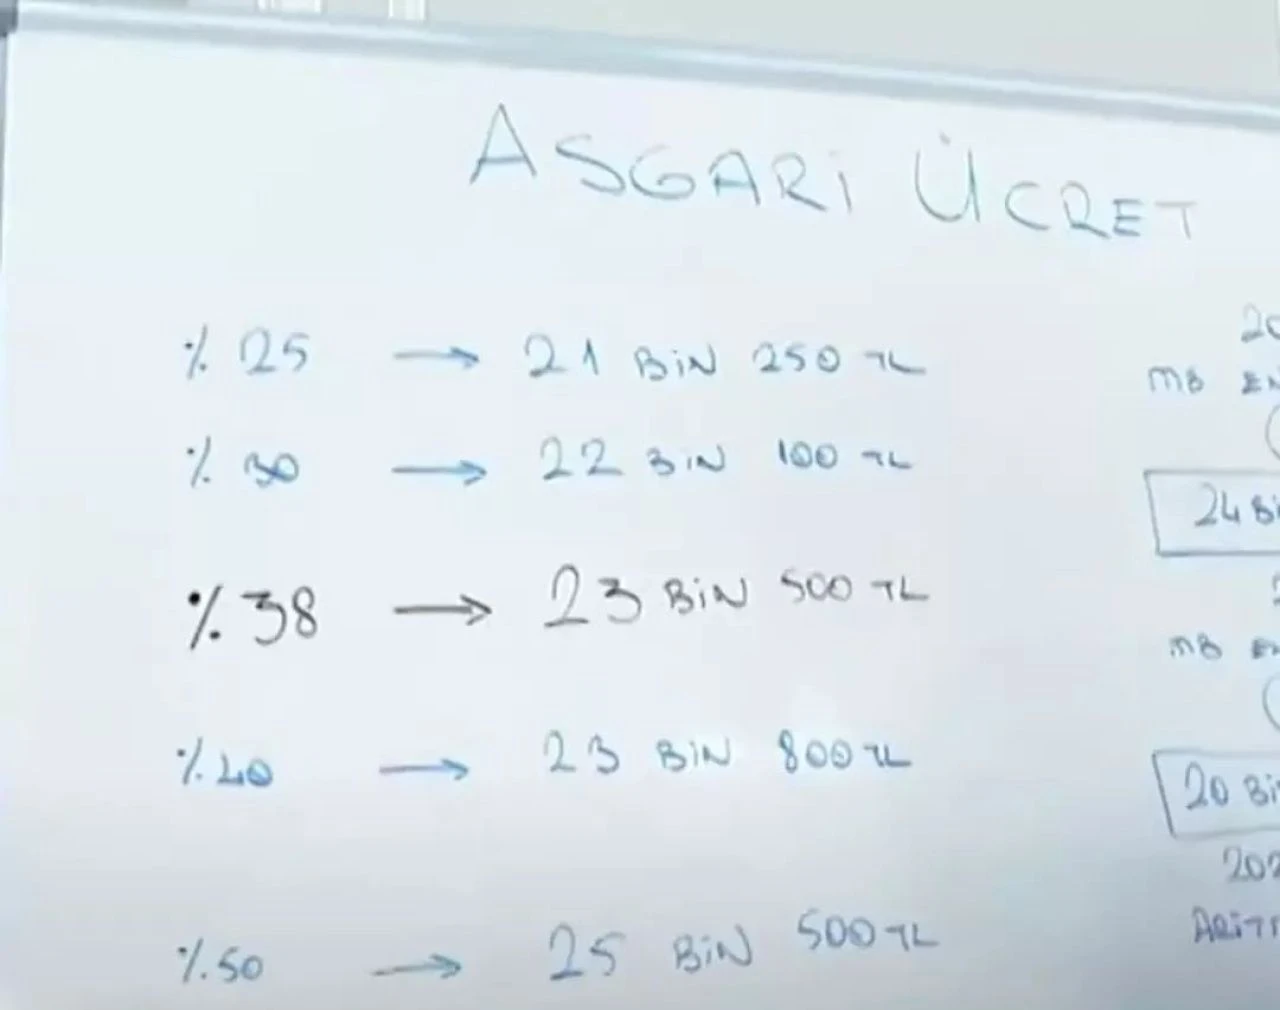 ASGARİ ÜCRET
% 25 → 21 BİN 250 TL
% 30 → 22 BİN 100 TL
% 38 → 23 BİN 500 TL
% 40 → 23 BİN 800 TL
% 50 → 25 BİN 500 TL
MB
24
MB
20